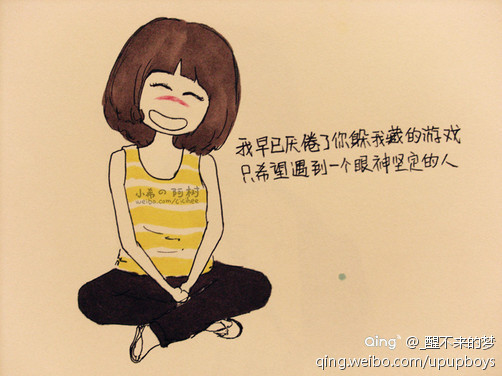 我早已厌倦了你躲我藏的游戏
只希望遇到一个眼神坚定的人
小希の阿树
Qing @_醒不来的梦
qing.weibo.com/upupboys